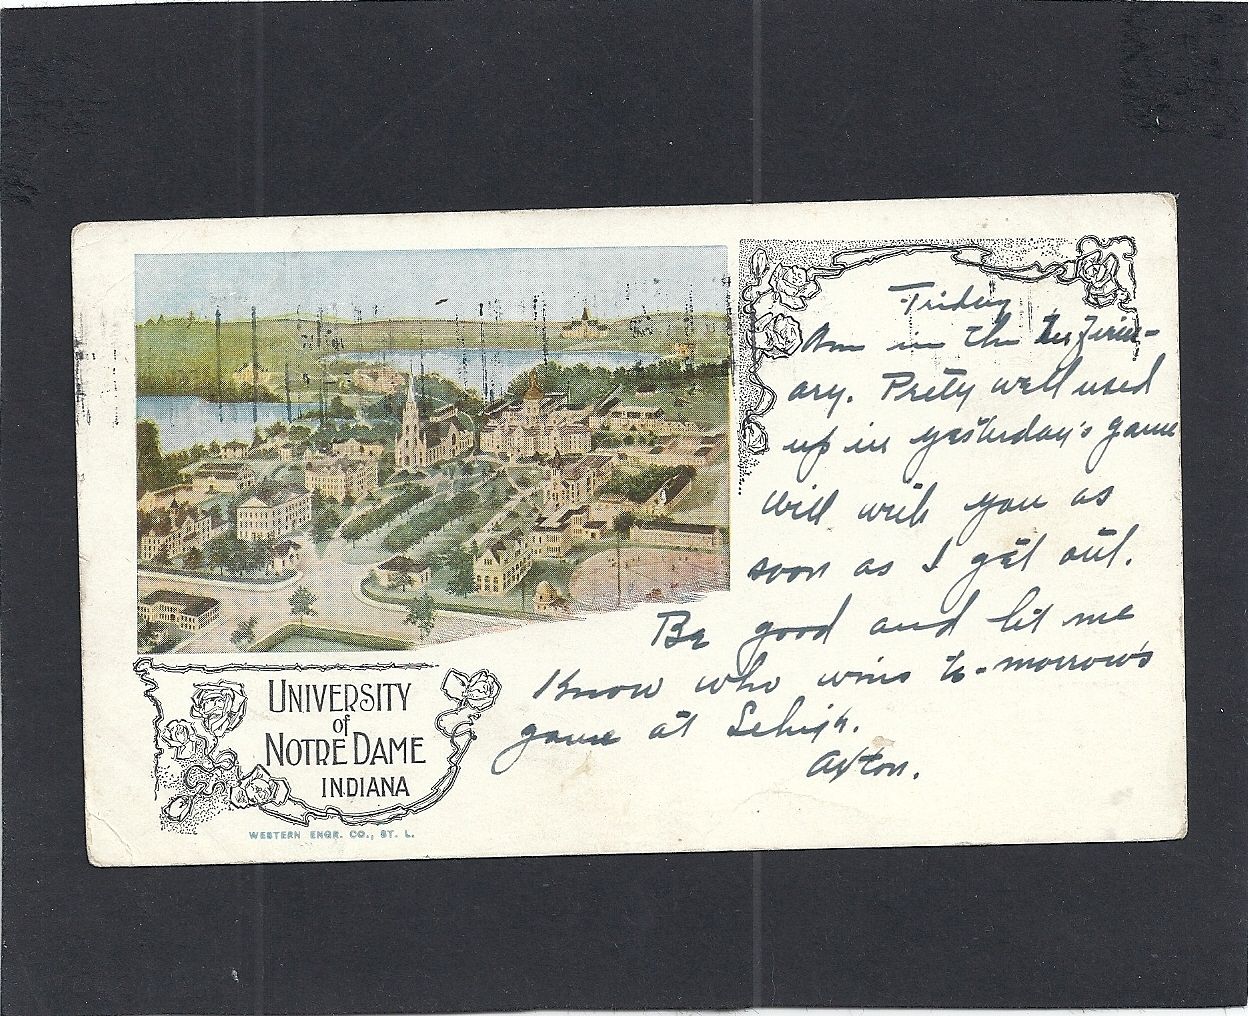 Friday
Am in the Infirm-
ary. Prety well used
up in yesterday's game
Will write you as
soon as I get out.
Be good and let me
Know who wins to-morrow's
game at Lehigh.
Axton.
UNIVERSITY
of
NOTRE DAME
INDIANA
WESTERN ENGR. CO., ST. L.